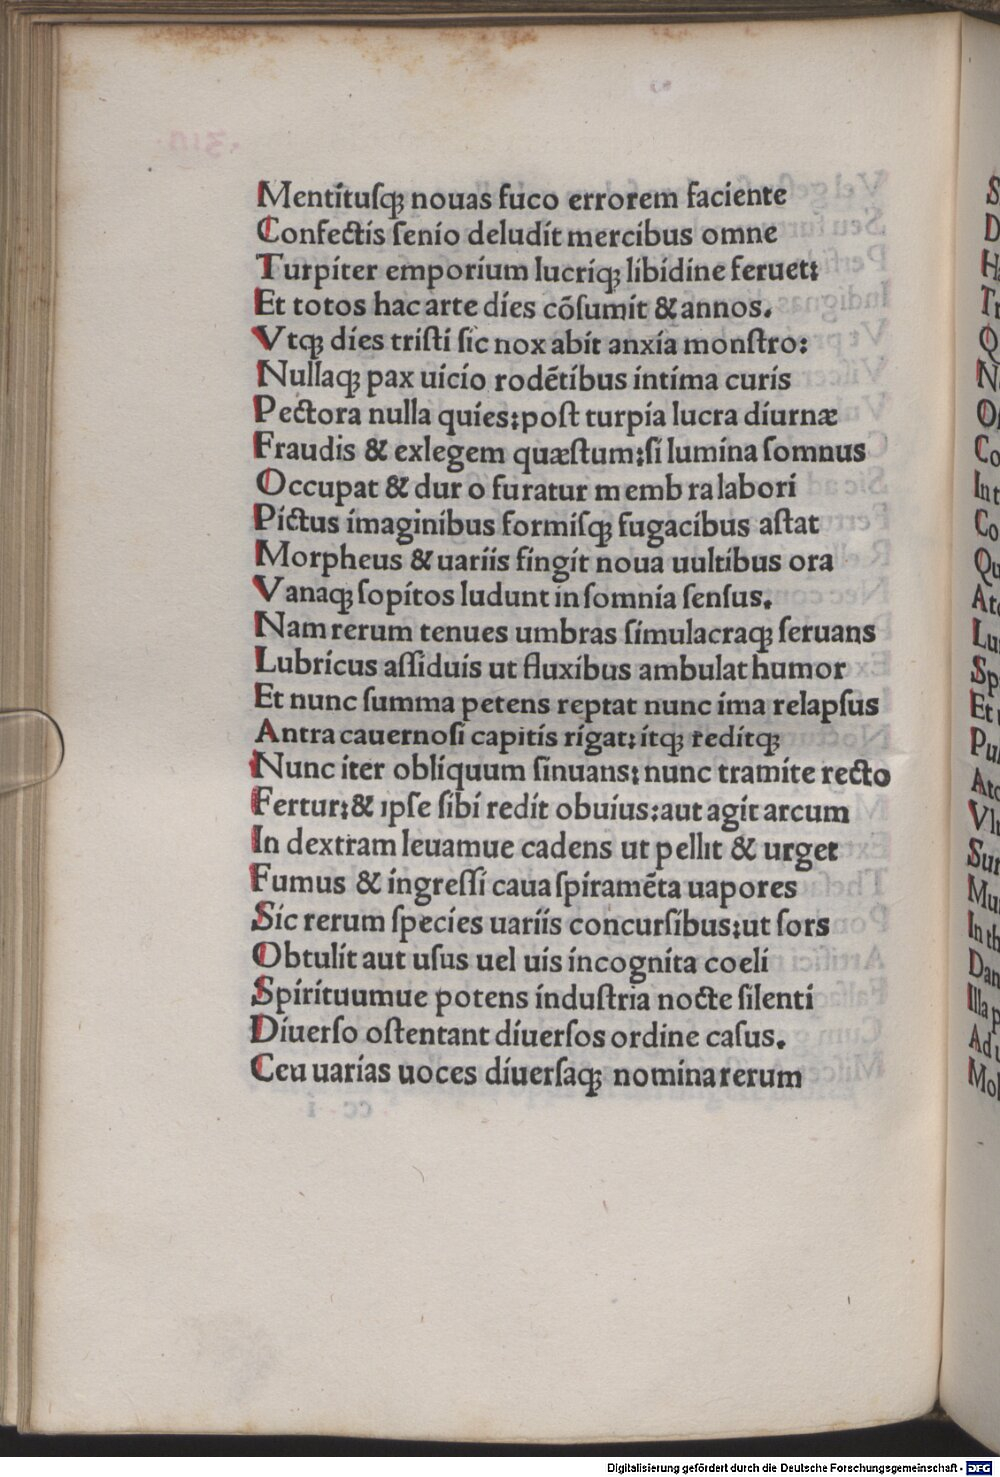 Mentituſqꝫ nouas fuco errorem faciente
Confectis ſenio deludit mercibus omne
Turpiter emporium lucriqꝫ libidine feruet:
Et totos hac arte dies cōſumit & annos.
Vtqꝫ dies triſti ſic nox abit anxia monſtro:
Nullaqꝫ pax uicio rodētibus intima curis
Pectora nulla quies:poſt turpia lucra diurnæ
Fraudis & exlegem quæſtum:ſi lumina ſomnus
Occupat & dur o furatur memb ra labori
Pictus imaginibus formiſqꝫ fugacibus aſtat
Morpheus & uariis fingit noua uultibus ora
Vanaqꝫ ſopitos ludunt in ſomnia ſenſus.
Nam rerum tenues umbras ſimulacraqꝫ ſeruans
Lubricus aſſiduis ut fluxibus ambulat humor
Et nunc ſumma petens reptat nunc ima relapſus
Antra cauernoſi capitis rigat: itqꝫ reditqꝫ
Nunc iter obliquum ſinuans: nunc tramite recto
Fertur:& ipſe ſibi redit obuius:aut agit arcum
In dextram leuamue cadens ut pellit & urget
Fumus & ingreſſi caua ſpiramēta uapores
Sic rerum ſpecies uariis concurſibus:ut ſors
Obtulit aut uſus uel uis incognita coeli
Spirituumue potens induſtria nocte ſilenti
Diuerſo oſtentant diuerſos ordine caſus.
Ceu uarias uoces diuerſaqꝫ nomina rerum
Digitalisierung gefördert durch die Deutsche Forschungsgemeinschaft - DFG